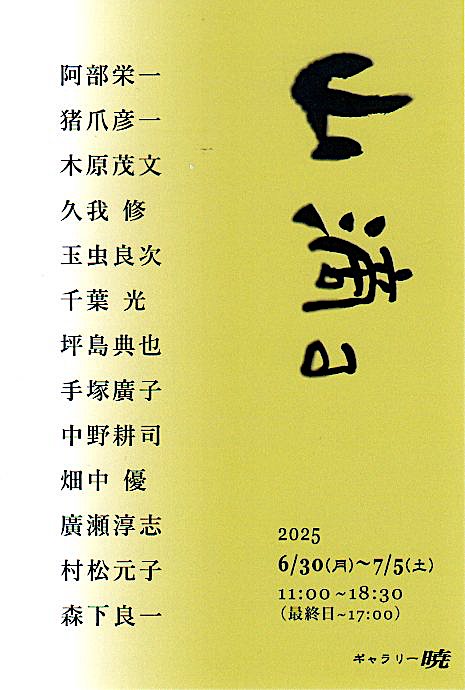 山滴る
阿部栄一
猪爪彦一
木原茂文
久我 修
玉虫良次
千葉 光
坪島典也
手塚廣子
中野耕司
畑中 優
廣瀬淳志
村松元子
森下良一
2025
6/30(月)~7/5(土)
11:00~18:30
(最終日~17:00)
ギャラリー暁